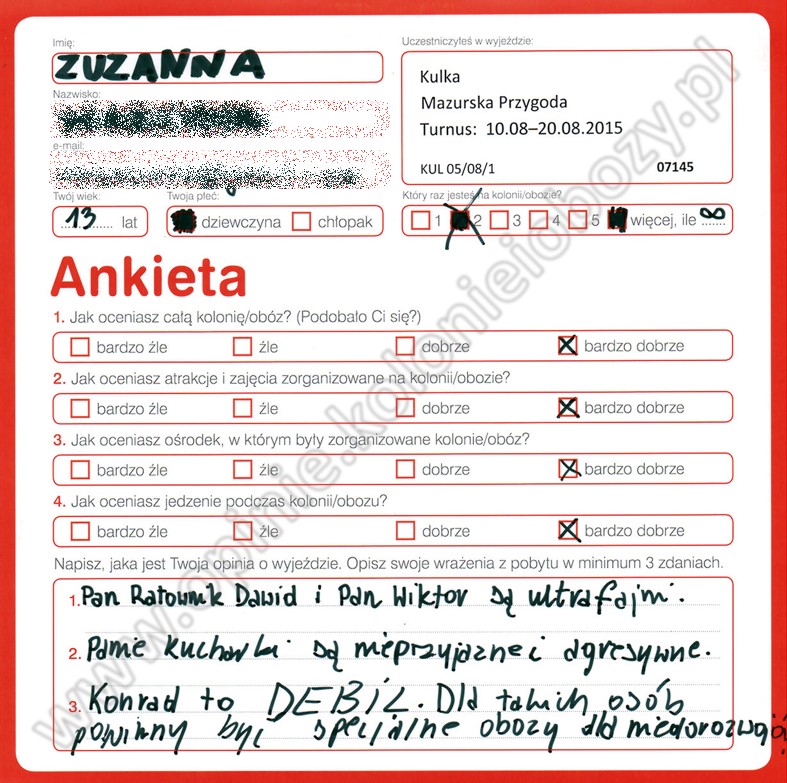 Imię:
ZUZANNA
Nazwisko:
e-mail:
Twój wiek:
13 lat
Twoja płeć:
dziewczyna chłopak
Uczestniczyłeś w wyjeździe:
Kulka
Mazurska Przygoda
Turnus: 10.08–20.08.2015
KUL 05/08/1 07145
Który raz jesteś na kolonii/obozie?
1 2 3 4 5 więcej, ile 8
Ankieta
1. Jak oceniasz całą kolonię/obóz? (Podobało Ci się?)
bardzo źle źle dobrze bardzo dobrze
2. Jak oceniasz atrakcje i zajęcia zorganizowane na kolonii/obozie?
bardzo źle źle dobrze bardzo dobrze
3. Jak oceniasz ośrodek, w którym były zorganizowane kolonie/obóz?
bardzo źle źle dobrze bardzo dobrze
4. Jak oceniasz jedzenie podczas kolonii/obozu?
bardzo źle źle dobrze bardzo dobrze
Napisz, jaka jest Twoja opinia o wyjeździe. Opisz swoje wrażenia z pobytu w minimum 3 zdaniach.
1. Pan Ratownik Dawid i Pan Wiktor są ultrafajni.
2. Panie kucharki są nieprzyjazne i agresywne.
3. Konrad to DEBIL. Dla takich osób
powinny być specjalne obozy dla
www.opinie.kolonieiobozy.pl